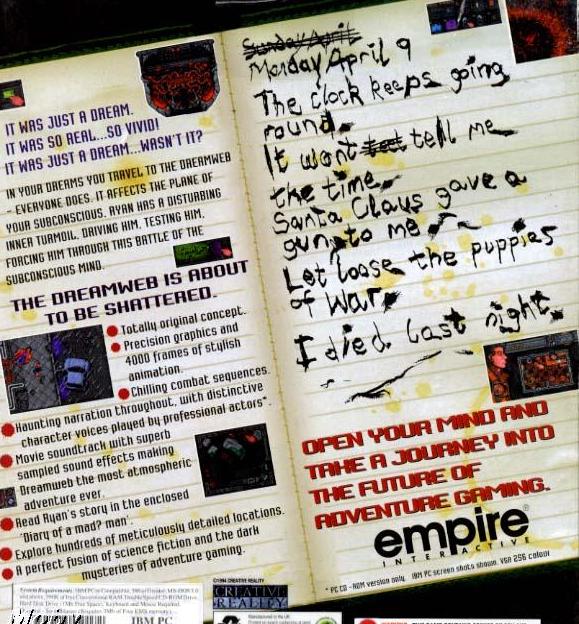 IT WAS JUST A DREAM.
IT WAS SO REAL...SO VIVID!
IT WAS JUST A DREAM...WASN'T IT?
IN YOUR DREAMS YOU TRAVEL TO THE DREAMWEB
- EVERYONE DOES. IT AFFECTS THE PLANE OF
YOUR SUBCONSCIOUS. RYAN HAS A DISTURBING
INNER TURMOIL, DRIVING HIM, TESTING HIM,
FORCING HIM THROUGH THIS BATTLE OF THE
SUBCONSCIOUS MIND.
THE DREAMWEB IS ABOUT
TO BE SHATTERED.
Totally original concept.
Precision graphics and
4000 frames of stylish
animation.
Chilling combat sequences.
Haunting narration throughout, with distinctive
character voices played by professional actors*.
Movie soundtrack with superb
sampled sound effects making
Dreamweb the most atmospheric
adventure ever.
Read Ryan's story in the enclosed
'Diary of a mad? man'.
Explore hundreds of meticulously detailed locations.
A perfect fusion of science fiction and the dark
mysteries of adventure gaming.
IBM PC
©1994 CREATIVE REALITY
CREATIVE
REALITY
Sunday April
Monday April 9
The clock keeps going
round.
It wont tell me
the time.
Santa Claus gave a
gun to me
Let loose the puppies
of War
I died last night.
OPEN YOUR MIND AND
TAKE A JOURNEY INTO
THE FUTURE OF
ADVENTURE GAMING.
empire®
INTERACTIVE
* PC CD - ROM version only. IBM PC screen shots shown. VGA 256 colour